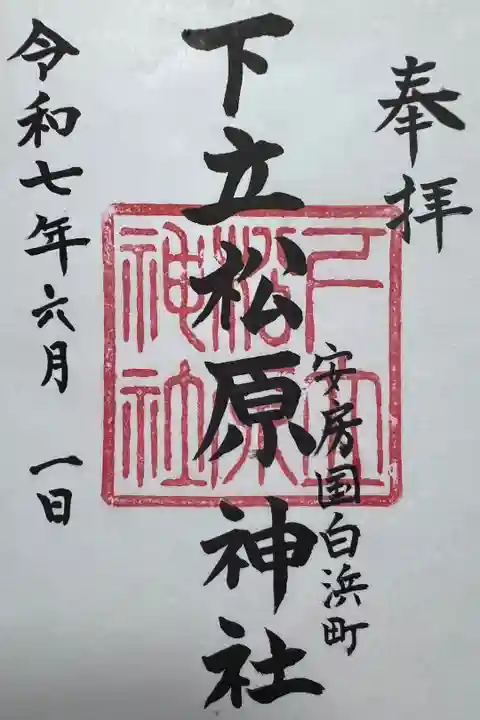 奉拝
安房国白浜町
下立松原神社
下立
松原
神社
令和七年六月 一日